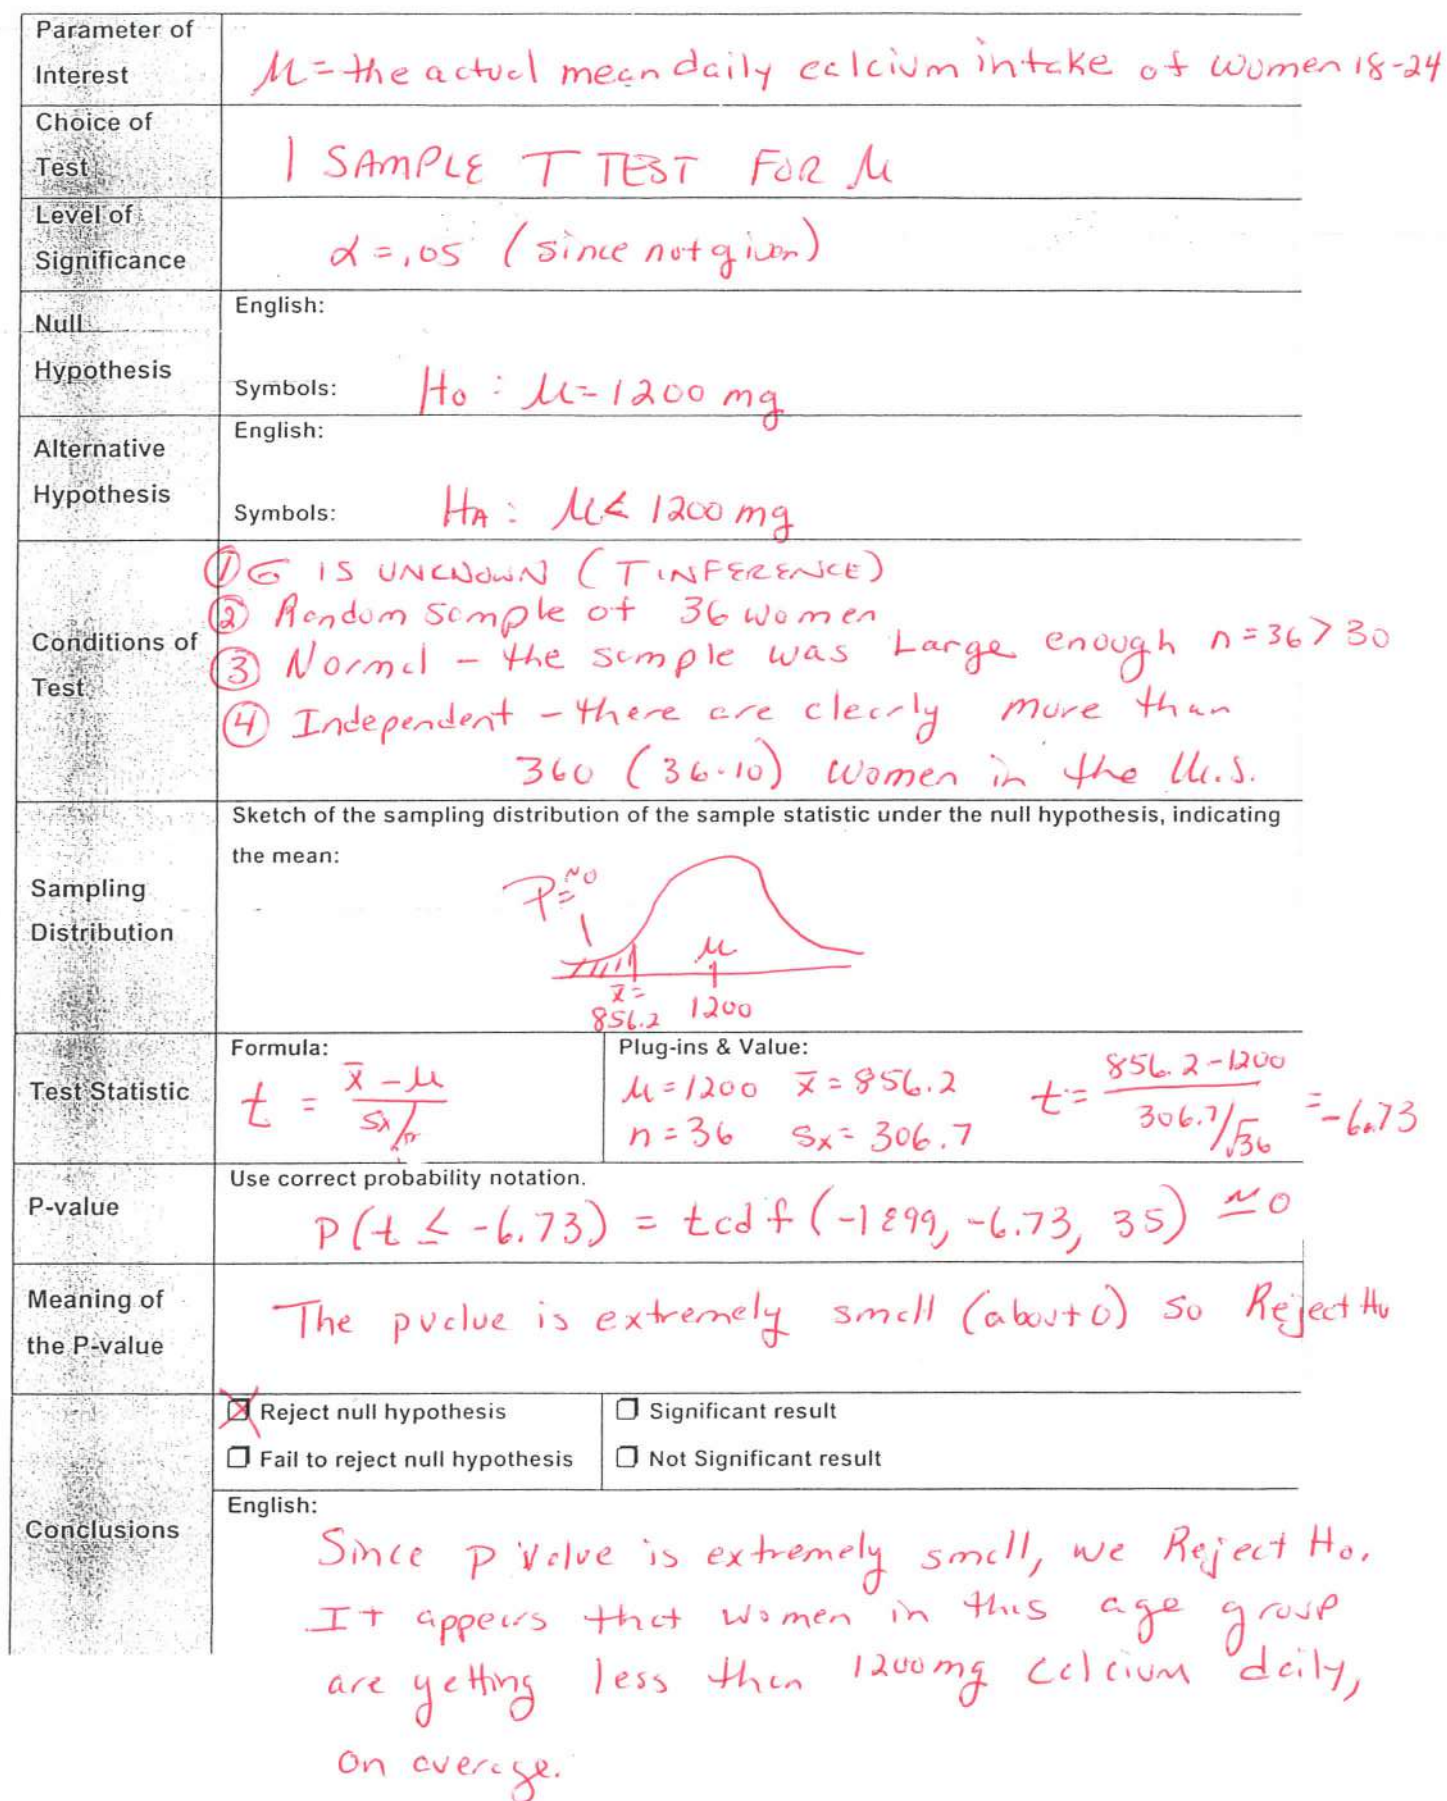 Parameter of
Interest
μ = the actual mean daily calcium intake of women 18-24
Choice of
Test
1 SAMPLE T TEST FOR μ
Level of
Significance
α = .05 (since not given)
Null
Hypothesis
English:
Symbols: H₀ : μ = 1200 mg
Alternative
Hypothesis
English:
Symbols: HA : μ < 1200 mg
Conditions of
Test
① σ IS UNKNOWN (T INFERENCE)
② Random sample of 36 women
③ Normal - the sample was Large enough n = 36 > 30
④ Independent - there are clearly more than
360 (36·10) women in the U.S.
Sampling
Distribution
Sketch of the sampling distribution of the sample statistic under the null hypothesis, indicating
the mean:
P = ~0
μ
x̄ =
856.2
1200
Test Statistic
Formula:
t = x̄ - μ / Sx/√n
Plug-ins & Value:
μ = 1200 x̄ = 856.2
n = 36 Sx = 306.7
t = 856.2 - 1200 / 306.7/√36 = -6.73
P-value
Use correct probability notation.
P(t ≤ -6.73) = tcdf(-1E99, -6.73, 35) ≃ 0
Meaning of
the P-value
The pvalue is extremely small (about 0) so Reject H₀
Conclusions
Reject null hypothesis
Fail to reject null hypothesis
Significant result
Not Significant result
English:
Since p value is extremely small, we Reject H₀.
It appears that women in this age group
are getting less than 1200mg calcium daily,
on average.